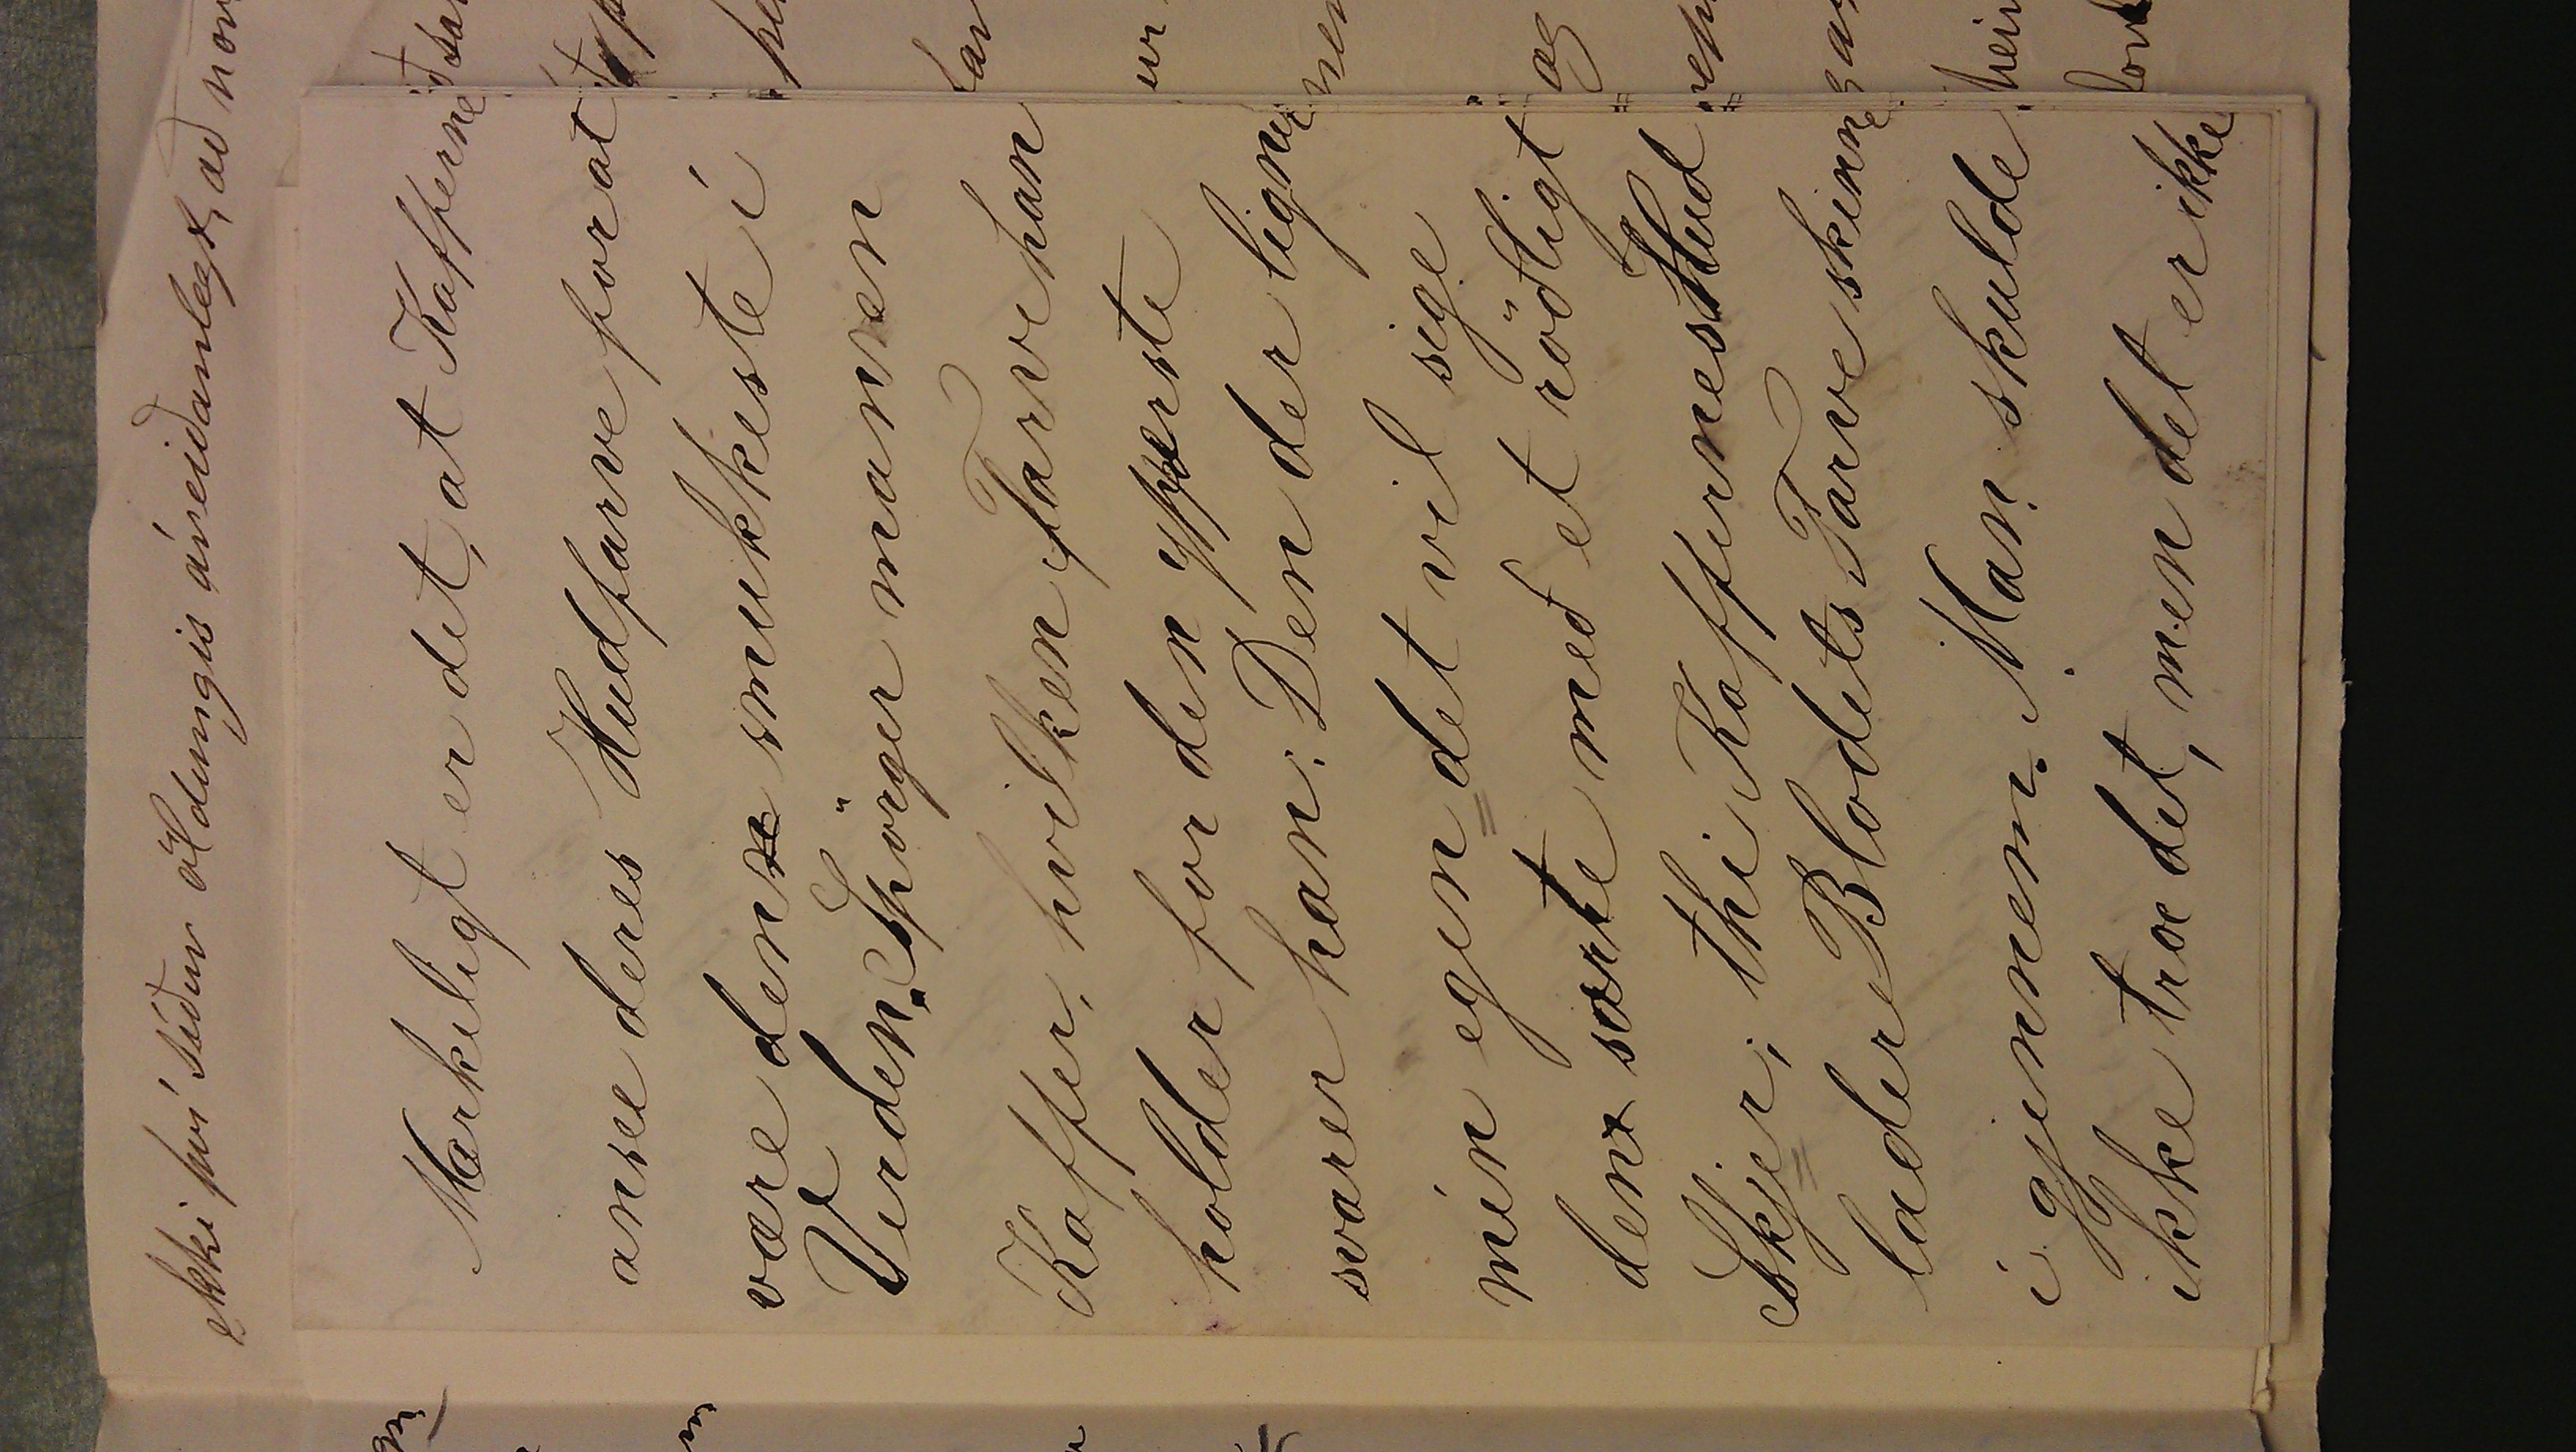 ekki því síður öldungis áreiðanlegt, að
Mærkeligt er det, at Kafferne
ansee deres Hudfarve for at
være den smukkeste i
Verden. Spörger man en
Kaffer, hvilken Farve han
holder for den ypperste
svarer han: Den der ligner
min egen det vil sige
den sorte med et rödligt
Skjer; thi Kaffernes Hud
lader Blodets Farve skinne
igjennem. Man skulde
ikke troe det, men det er ikke
og